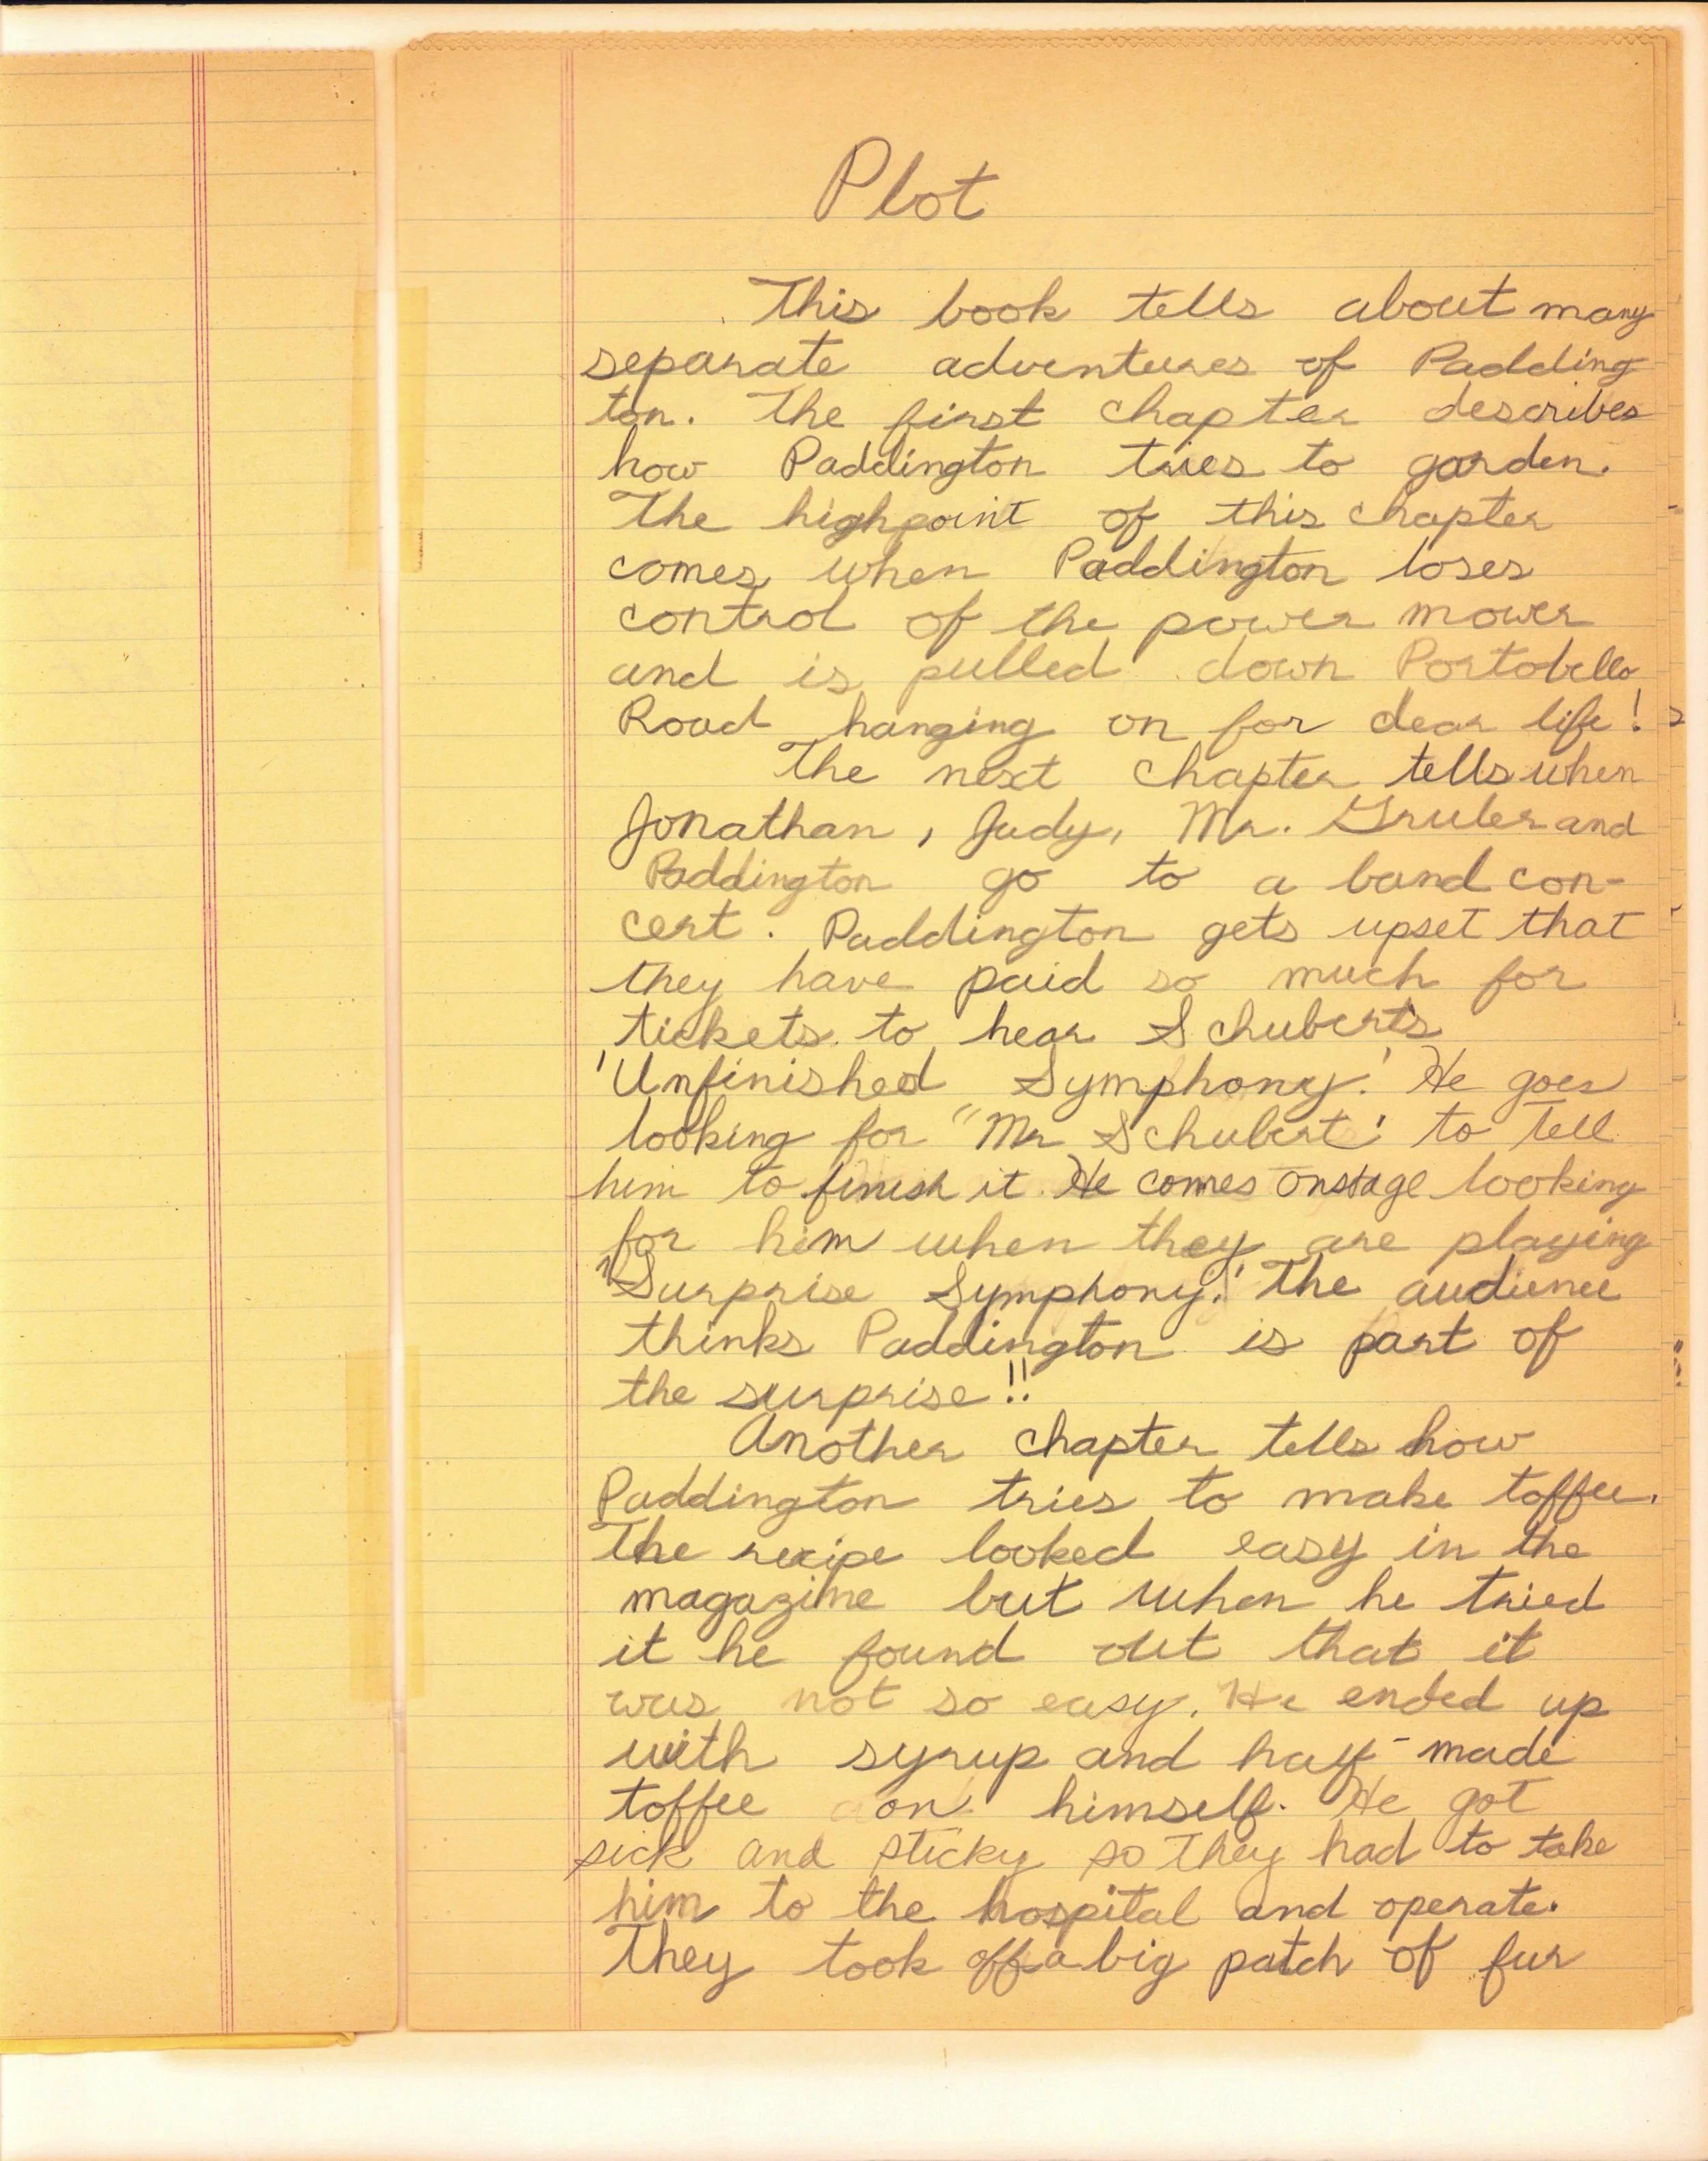 Plot
This book tells about many
separate adventures of Padding
ton. The first chapter describes
how Paddington tries to garden.
The highpoint of this chapter
comes when Paddington loses
control of the power mower
and is pulled down Portobello
Road hanging on for dear life!
The next chapter tells when
Jonathan, Judy, Mr. Gruber and
Paddington go to a band con-
cert. Paddington gets upset that
they have paid so much for
tickets to hear Schubert's
'Unfinished Symphony.' He goes
looking for "Mr Schubert' to tell
him to finish it. He comes onstage looking
for him when they are playing
"Surprise Symphony.' The audience
thinks Paddington is part of
the surprise!!
Another chapter tells how
Paddington tries to make toffee.
The recipe looked easy in the
magazine but when he tried
it he found out that it
was not so easy. He ended up
with syrup and half-made
toffee on himself. He got
sick and sticky so they had to take
him to the hospital and operate.
They took off a big patch of fur